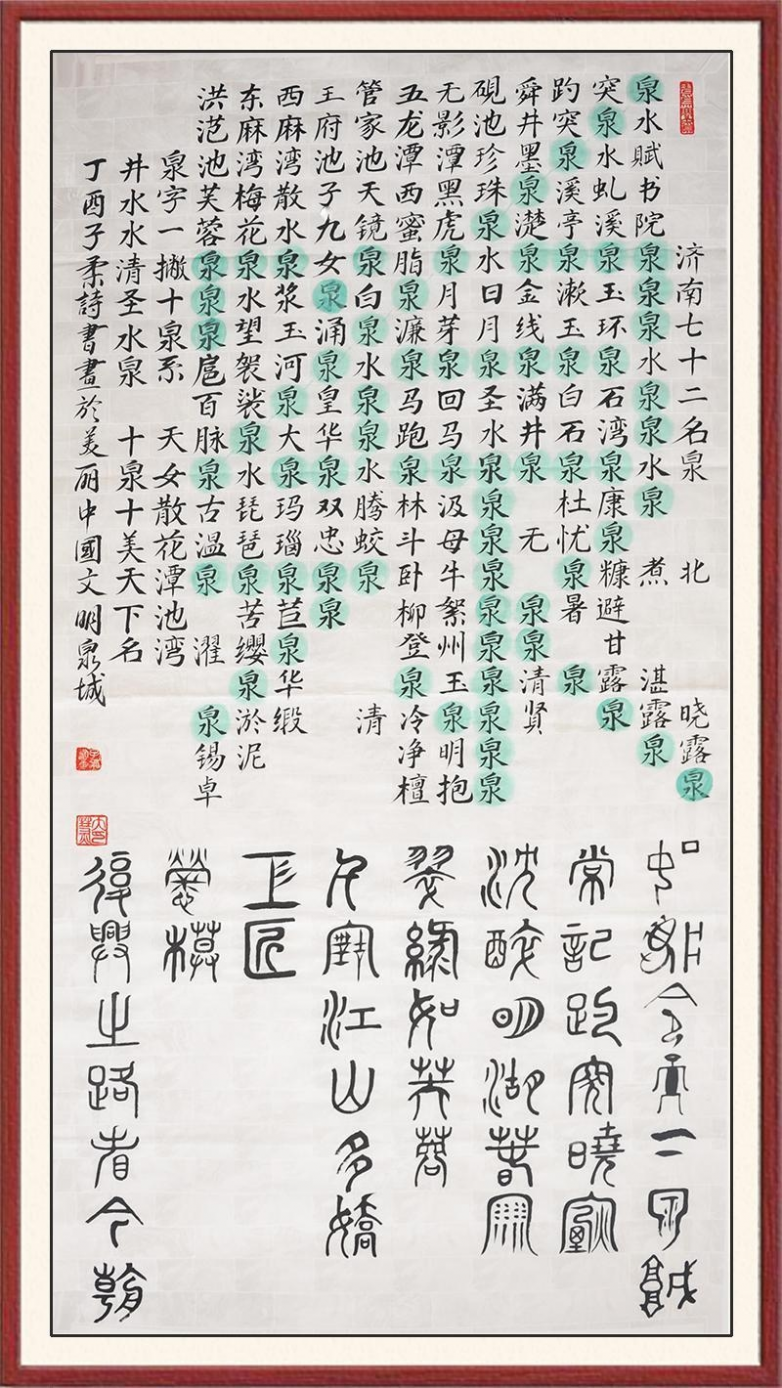 济南七十二名泉 北 晓露泉
泉水赋书院泉泉泉水泉泉水泉 煮 湛露泉
突泉水虬溪泉玉环泉石湾泉康泉糠避甘露泉
趵突泉溪亭泉漱玉泉白石泉杜忧泉暑 泉
舜井墨泉濋泉金线泉满井泉 无 泉泉清贤
砚池珍珠泉水日月泉圣水泉泉泉泉泉泉泉泉泉泉
无影潭黑虎泉月芽泉回马泉汲母牛絮州玉泉明抱
五龙潭西蜜脂泉濂泉马跑泉林斗卧柳登泉冷净檀
管家池天镜泉白泉水泉泉水腾蛟泉 清
王府池子九女泉涌泉皇华泉双忠泉泉
西麻湾散水泉浆玉河泉大泉玛瑙泉苣泉华缎
东麻湾梅花泉水望袈裟泉水琵琶泉苦缨泉淤泥
洪范池芙蓉泉泉泉扈百脉泉古温泉 濯 泉锡卓
泉字一撇十泉系 天女散花潭池湾
井水水清圣水泉 十泉十美天下名
丁酉子柔詩書畫於美丽中國文明泉城
常記趵突曉
沈醉明湖
翠緑如芙蓉
江山多嬌
匠
復興之路 今朝